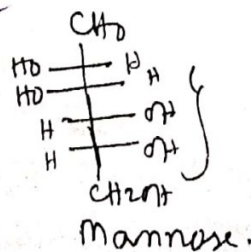 CHO
HO H
HO H
H OH
H OH
CH2OH
Mannose.